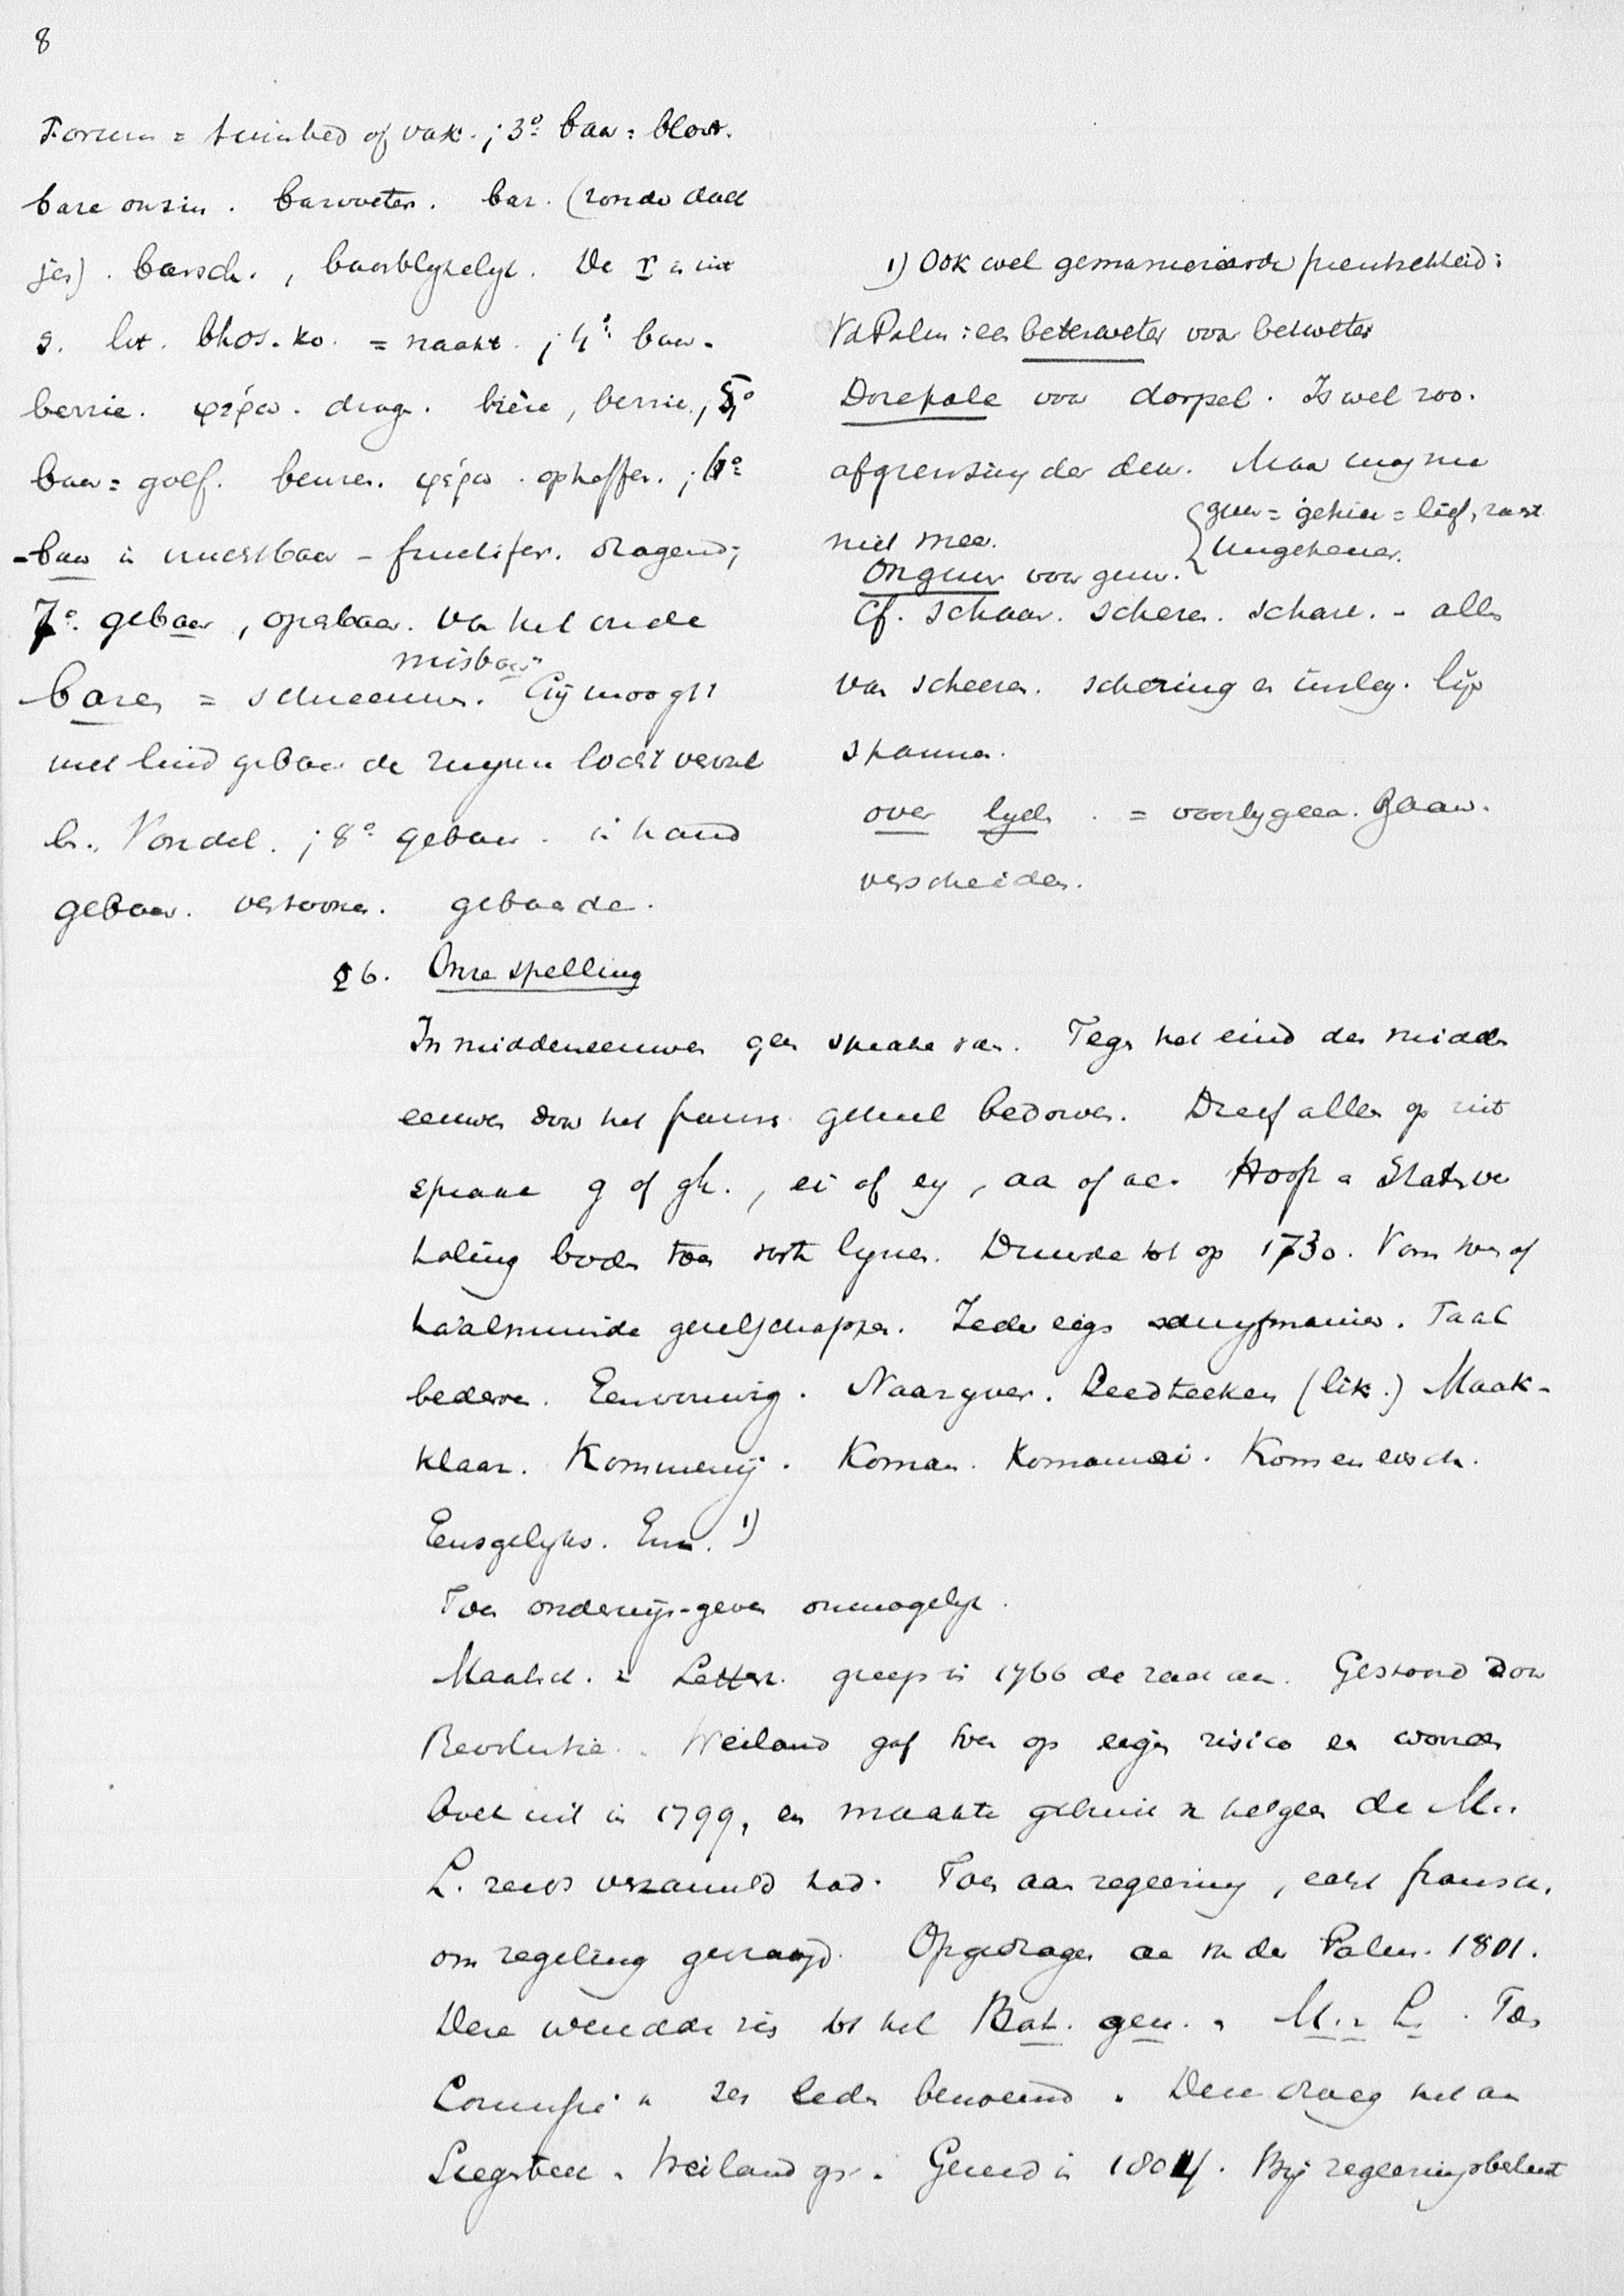 8
Forum = tuinbed of vak. ; 3º baar = bloot.
bare onzin. barvoeter. bar. (ronde dad
jes). barsch. , baarblijkelijk. De r is uit
s. lit. bhos-ko. = naakt. ; 4º baar -
berrie. φέρω. drag. bière, berrie. ; 5º
baar = golf. beuren. φέρω. opheffen. ; 6º
-baar in vruchtbaar - fructifer. dragend ;
7º. gebaar, openbaar. Van het oude
misbaar
baren = schreeuwen. Gij moogt
met luid gebaar de ruyme locht vervul
len. Vondel. ; 8º gebaar. in hand
gebaar. vertoonen. gebaarde.
1) Ook wel gemanierde preutschheid:
Vd Palm: een beterweter voor betweter
Dorepale voor dorpel. Is wel zoo.
afgrenzing der deur. Maar mag nu
niet meer.
{guur = geheur = lief, zacht
Ungeheuer.
Onguur voor guur.
Cf. Schaar. scheren. schare. - alles
van scheeren. schering en inslag. lijn
spannen.
over lyden. = voorbygaan. Gaan.
verscheiden.
§ 6. Onze spelling
In middeneeuwen geen sprake van. Tegen het eind der midden
eeuwen door het fransch geheel bedorven. Dreef alles op uit
spraak g of gh., ei of ey, aa of ae. Hooft en Statenver
taling boden toen vaste lijnen. Duurde tot op 1730. Van toen af
taalkundige genootschappen. Ieder eigen schryfmanier. Taal
bederven. Eenvormig. Naaryver. Leedteeken (lik.) Maak-
klaar. Kommenij. Koman. Komanei. Komen eisch.
Eensgelyks. Enz. 1)
Toen onderwijs-geven onmogelijk.
Maatsch. v. Letterk. greep in 1766 de zaak aan. Gestoord door
Revolutie. Weiland gaf toen op eigen risico een woorden
boek uit in 1799, en maakte gebruik v hetgeen de M. v.
L. reeds verzameld had. Toen aan regeering, echt fransch,
om regeling gevraagd. Opgedragen aan van der Palm. 1801.
Deze wendde zich tot het Bat. gen. en M. v. L. Toen
Commissie v zes leden benoemd. Deze droeg het aan
Siegenbeek en Weiland op. Gereed in 1804. Bij regeeringsbesluit